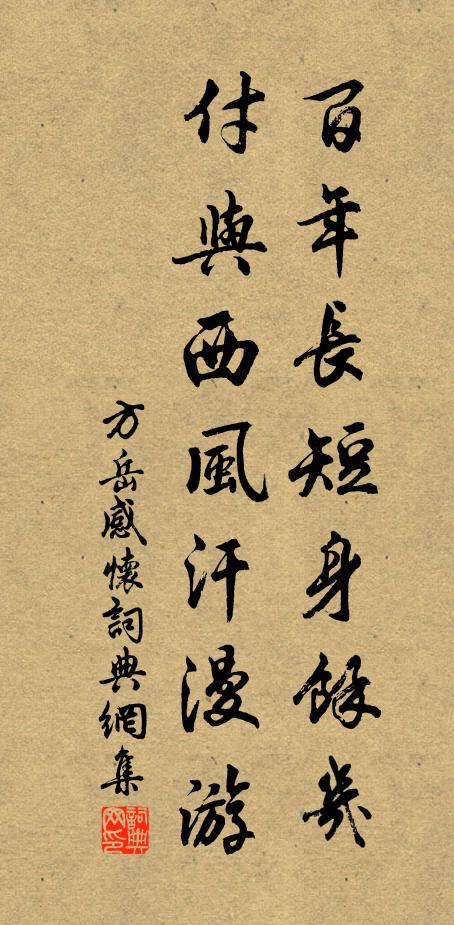 百年長短身餘幾
付與西風汗漫游
方岳感懷詞典網集
詞典網印